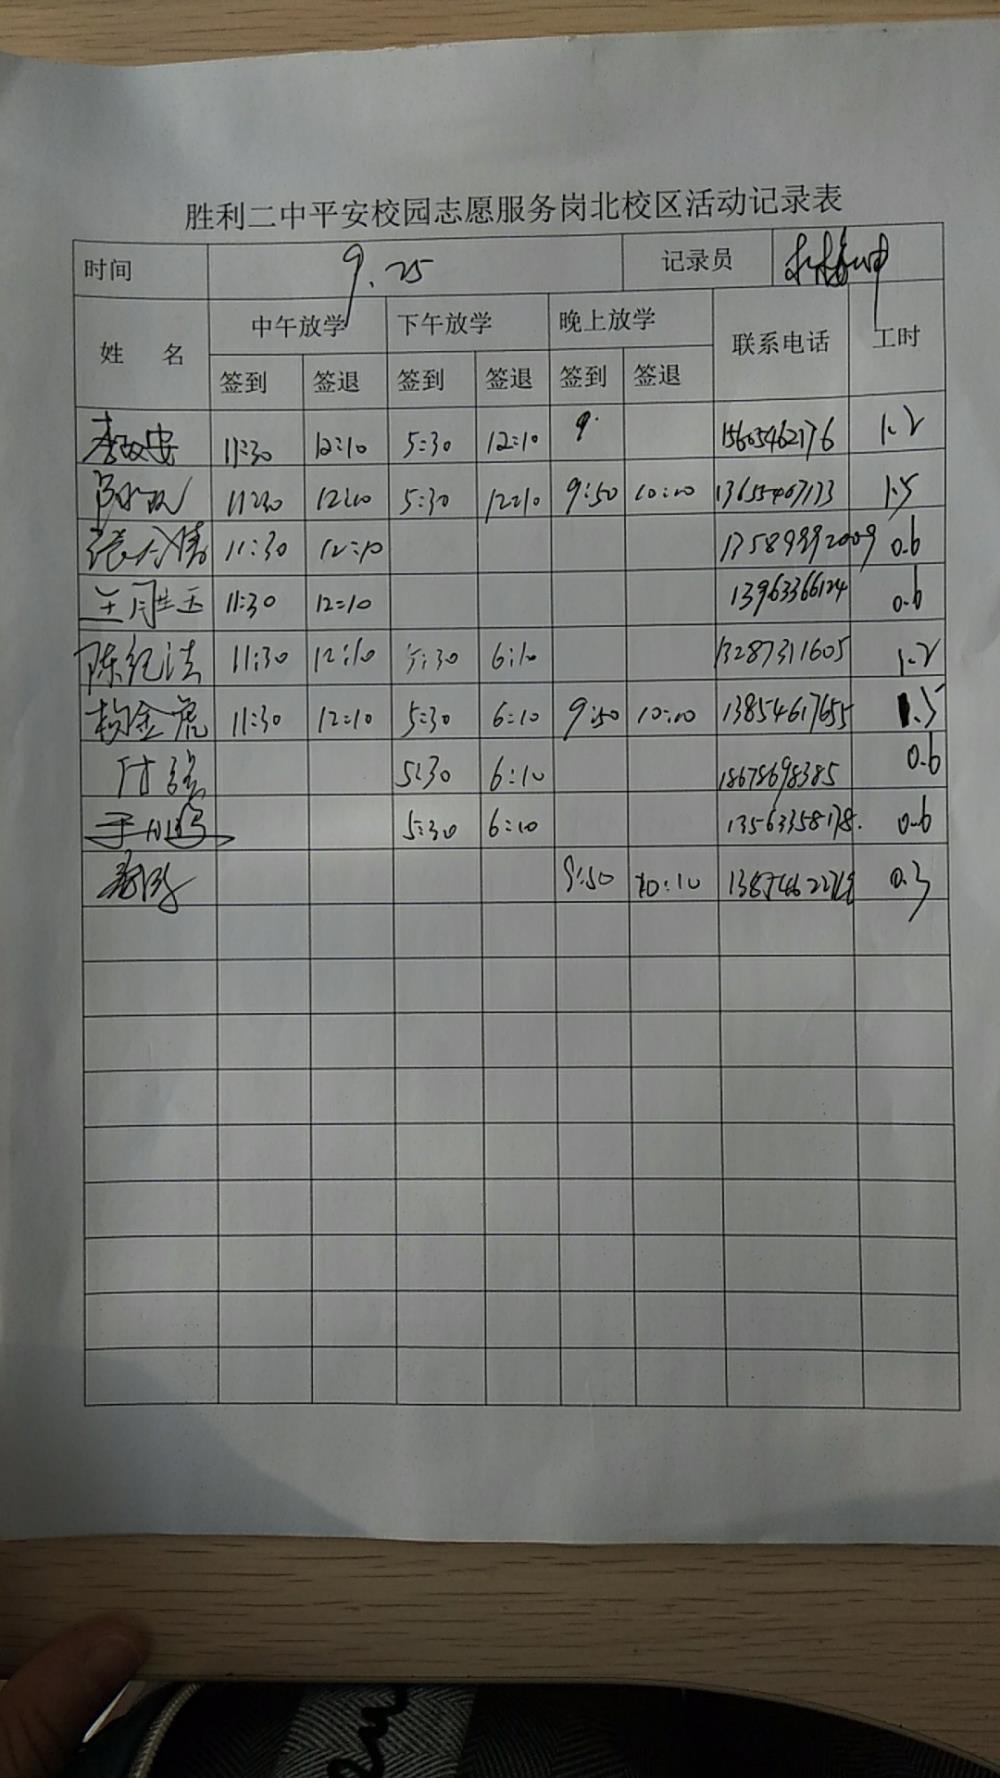 胜利二中平安校园志愿服务岗北校区活动记录表
时间 9.25 记录员
姓 名 中午放学 下午放学 晚上放学 联系电话 工时
签到 签退 签到 签退 签到 签退
11:30 12:10 5:30 12:10 9. 15605462176 1.2
11:30 12:10 5:30 12:10 9:50 10:10 1.5
11:30 12:10 13589992009 0.6
王胜玉 11:30 12:10 13963366124 0.6
陈纪法 11:30 12:10 5:30 6:10 13287311605 1.2
杨金虎 11:30 12:10 5:30 6:10 9:50 10:10 13854617655 1.5
付强 5:30 6:10 18678698385 0.6
5:30 6:10 13563358178. 0.6
9:50 10:10 0.3